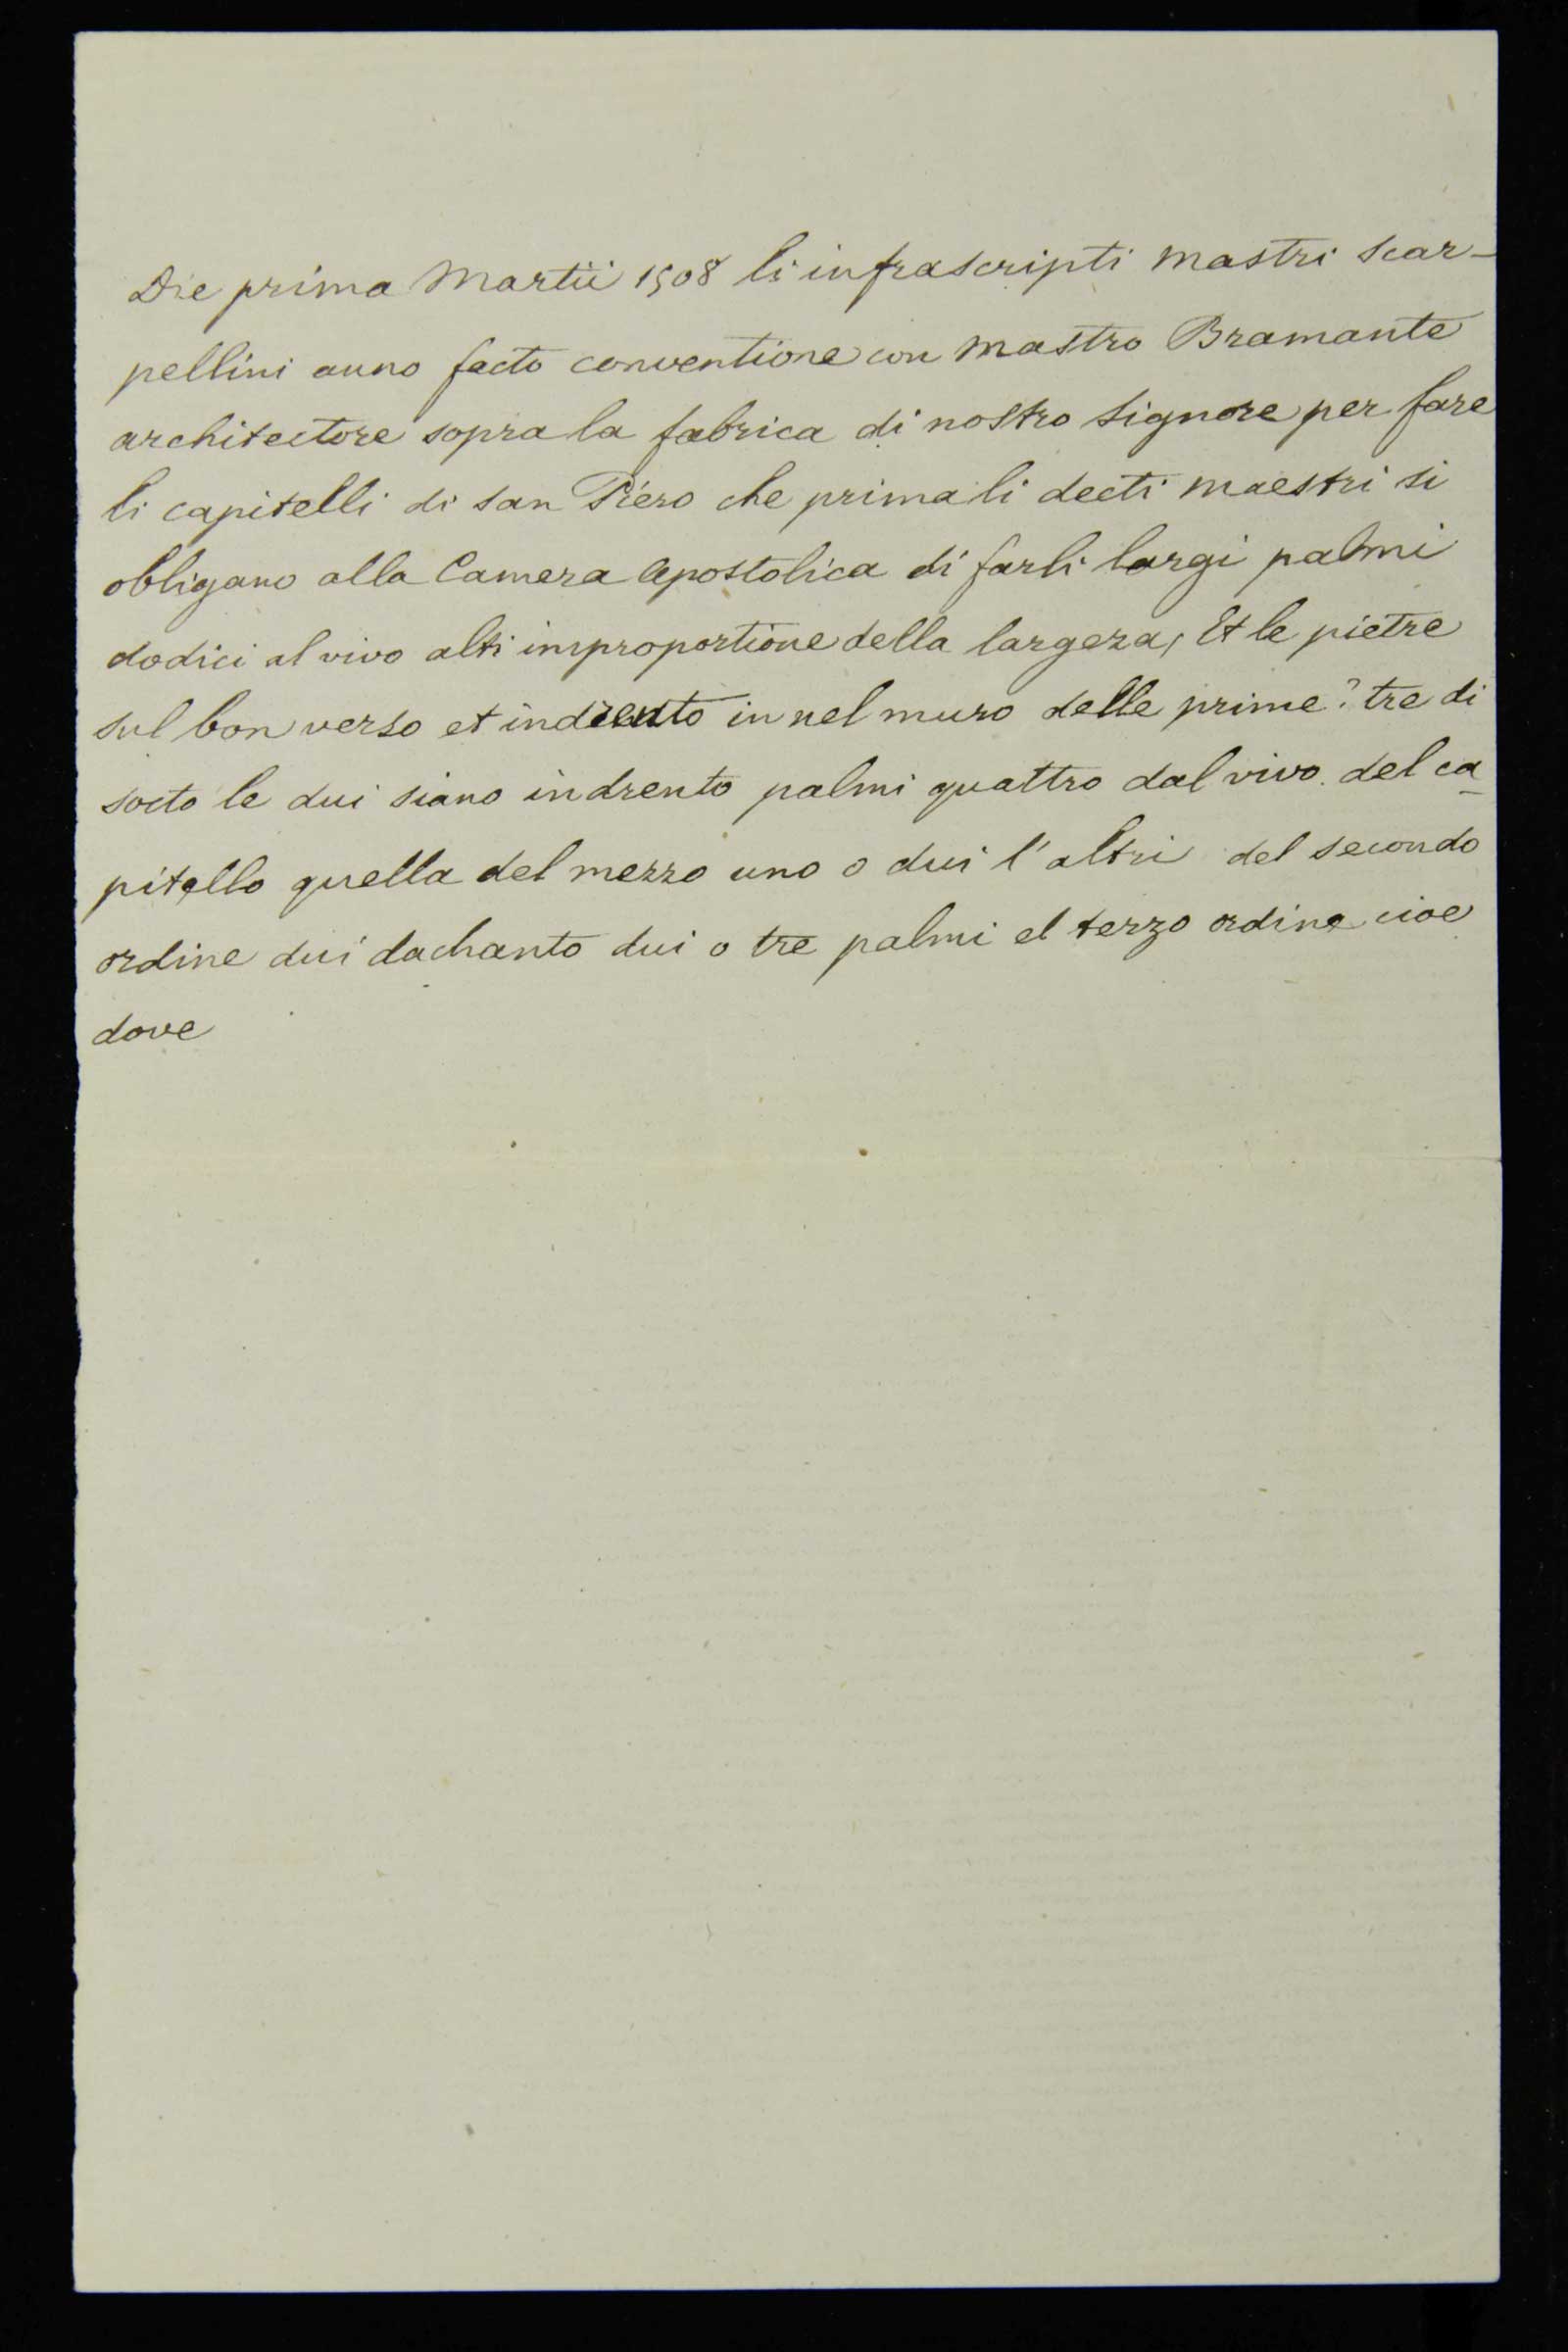 Die prima Martii 1508 li infrascripti mastri scar-
pellini anno facto conventione con mastro Bramante
architectore sopra la fabrica di nostro signore per fare
li capitelli di san Piero che prima li decti maestri si
obligano alla Camera Apostolica di farli largi palmi
dodici al vivo alti improportione della largeza, Et le pietre
sul bon verso et indrento in nel muro delle prime? tre di
socto le dui siano indrento palmi quattro dal vivo del ca-
pitello quella del mezzo uno o dui l'altri del secondo
ordine dui dachanto dui o tre palmi el terzo ordine cioe
dove